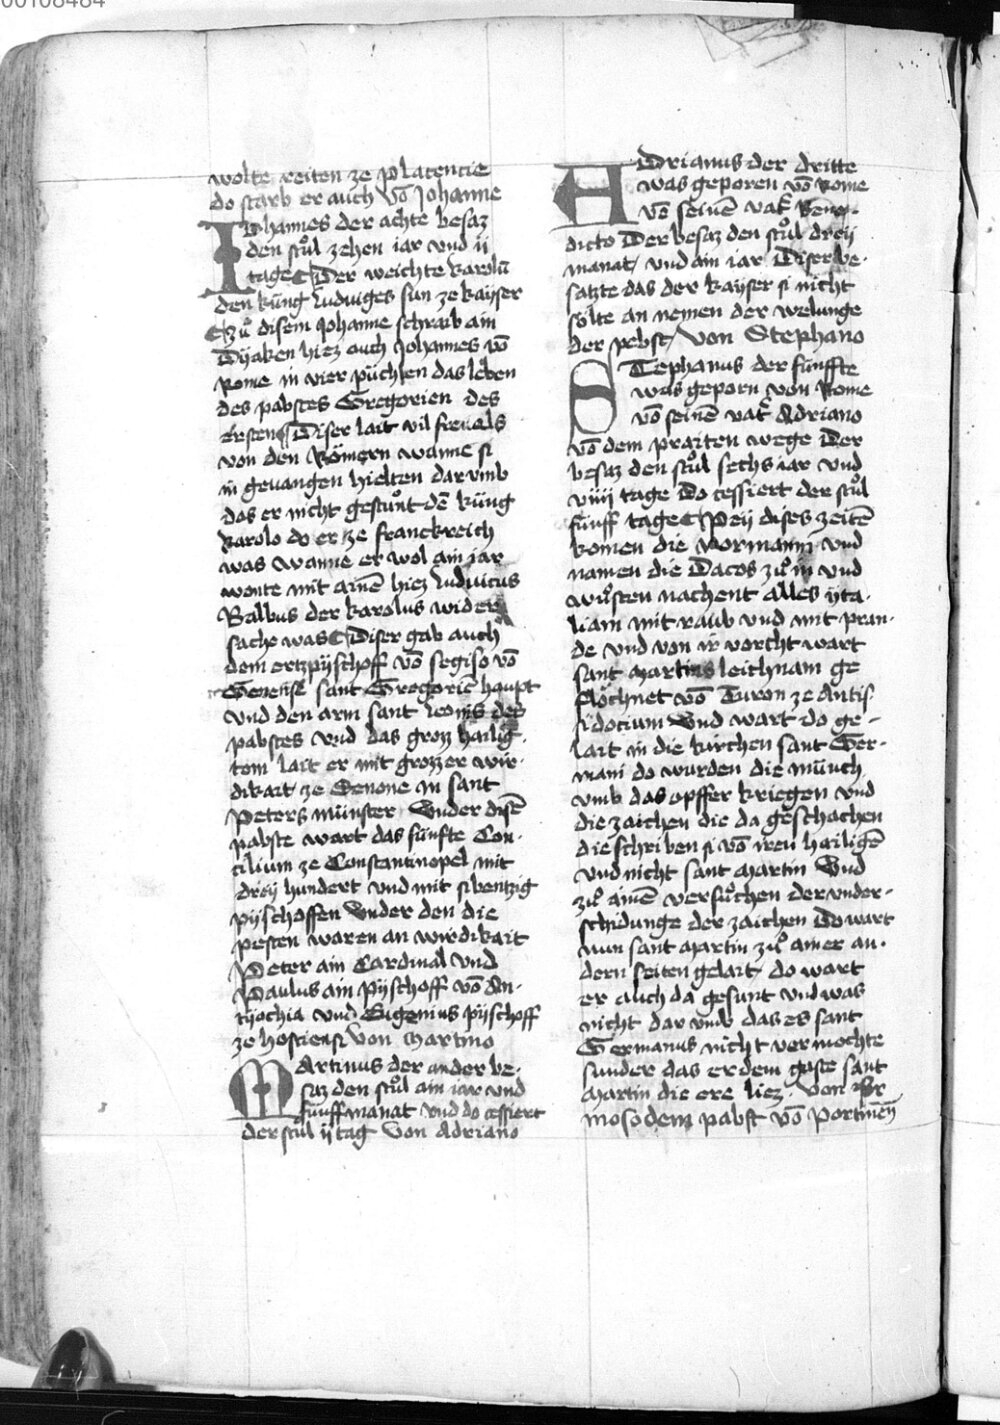 00108484
wolte reiten ze placencie
do starb er auch võ Johanne
Johannes der achte besaz
den stůl zehen iar vnd ij
tage Der weichte karolũ
den küng ludwiges sun ze kayser
zů disem Johanne schraib ain
Dyaken hiez auch Johannes võ
Rome in vier püchen das leben
des pabstes Gregorien des
ersten Diser lait vil frevels
von den Römern wanne si
in gevangen hielten dar vmb
das er nicht gestůnt dẽ küng
karolo do er ze franckreich
was wanne er wol ain iar
wonte mit ainẽ hiez ludvicus
Balbus der karolus wider
sache was Diser gab auch
dem ertzpyschoff võ segiso võ
Senensi sant Gregoriẽ haupt
vnd den arm sant leonis des
pabstes vnd das groz hailig
tom lait er mit grozzer wir
dikait ze Senone in sant
Peters münster Vnder disẽ
pabste wart das fünfte Con
cilium ze Constantinopel mit
dreÿ hundert vnd mit sibentzig
pÿschoffen Vnder den die
pesten waren an wirdikait
Peter ain Cardinal vnd
Paulus ain pÿschoff võ An
tÿochia vnd Eugenius pÿschoff
ze hostiensi Von Martino
Martinus der ander be
saz den stůl ain iar vnd
fünff manat vnd do cessiert
der stůl ij tag Von Adriano
Adrianus der dritte
was geporen võ Rome
võ seinẽ vat̃ Bene
dicto Der besaz den stůl dreÿ
manat vnd ain iar Diser be
satzte das der kayser si nicht
sölte an nemen der welunge
der pebst Von Stephano
Stephanus der fünffte
was geporn von Rome
võ seinẽ vat̃ Adriano
võ dem praiten wege Der
besaz den stůl sechs iar vnd
viiij tage Do cessiert der stůl
fünff tage Peÿ dises zeitẽ
komen die Normanni vnd
namen die Dacos zů in vnd
wůsten nachent alles ÿta
liam mit raub vnd mit pran
de vnd von ir vorcht wart
sant Martins leichnam ge
flöchnet võ Turon ze Antis
sidorium Vnd wart do ge
lait in die kirchen sant Ger
mani do wurden die münch
vmb das opffer kriegen vnd
die zaichen die da geschachen
die schriben si võ iren hailigẽ
vnd nicht sant Martin Vnd
zů ainẽ versůchen der vnder
schidunge der zaichen Do wart
nun sant Martin zů ainer an
dern seiten gelait do wart
er auch da gesunt vnd was
nicht dar vmb das es sant
Germanus nicht vermochte
sunder das er dem gaste sant
Martin die ere liez Von For
moso dem pabst võ portinẽn